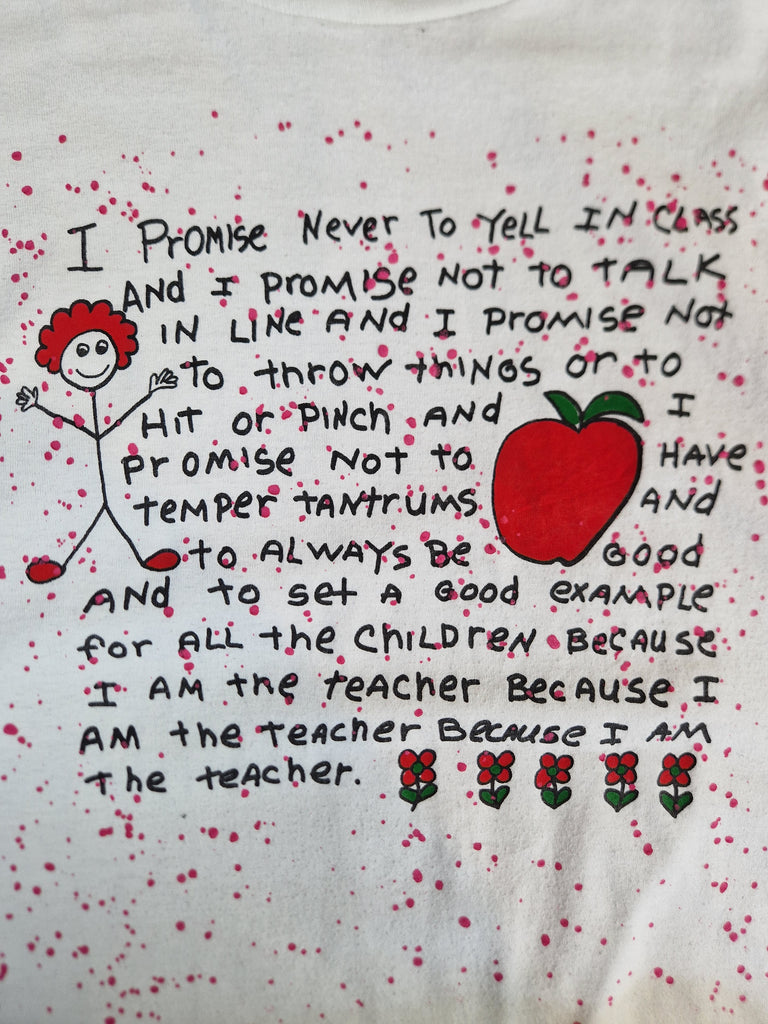 I PROMISE Never To YeLL IN CLASS
AND I PROMISE Not to TALK
IN LINe AND I PROMISE Not
to throw thINGS or to
Hit or PINCH AND I
PrOMISe Not to HAVe
temper tANtruMS AND
to ALWAYS Be GooD
AND to set A GooD exAMPLe
for ALL the ChiLDreN BeCAUSe
I AM the teACher BeCAUSe I
AM the teACher BeCAUSe I AM
the teACher.